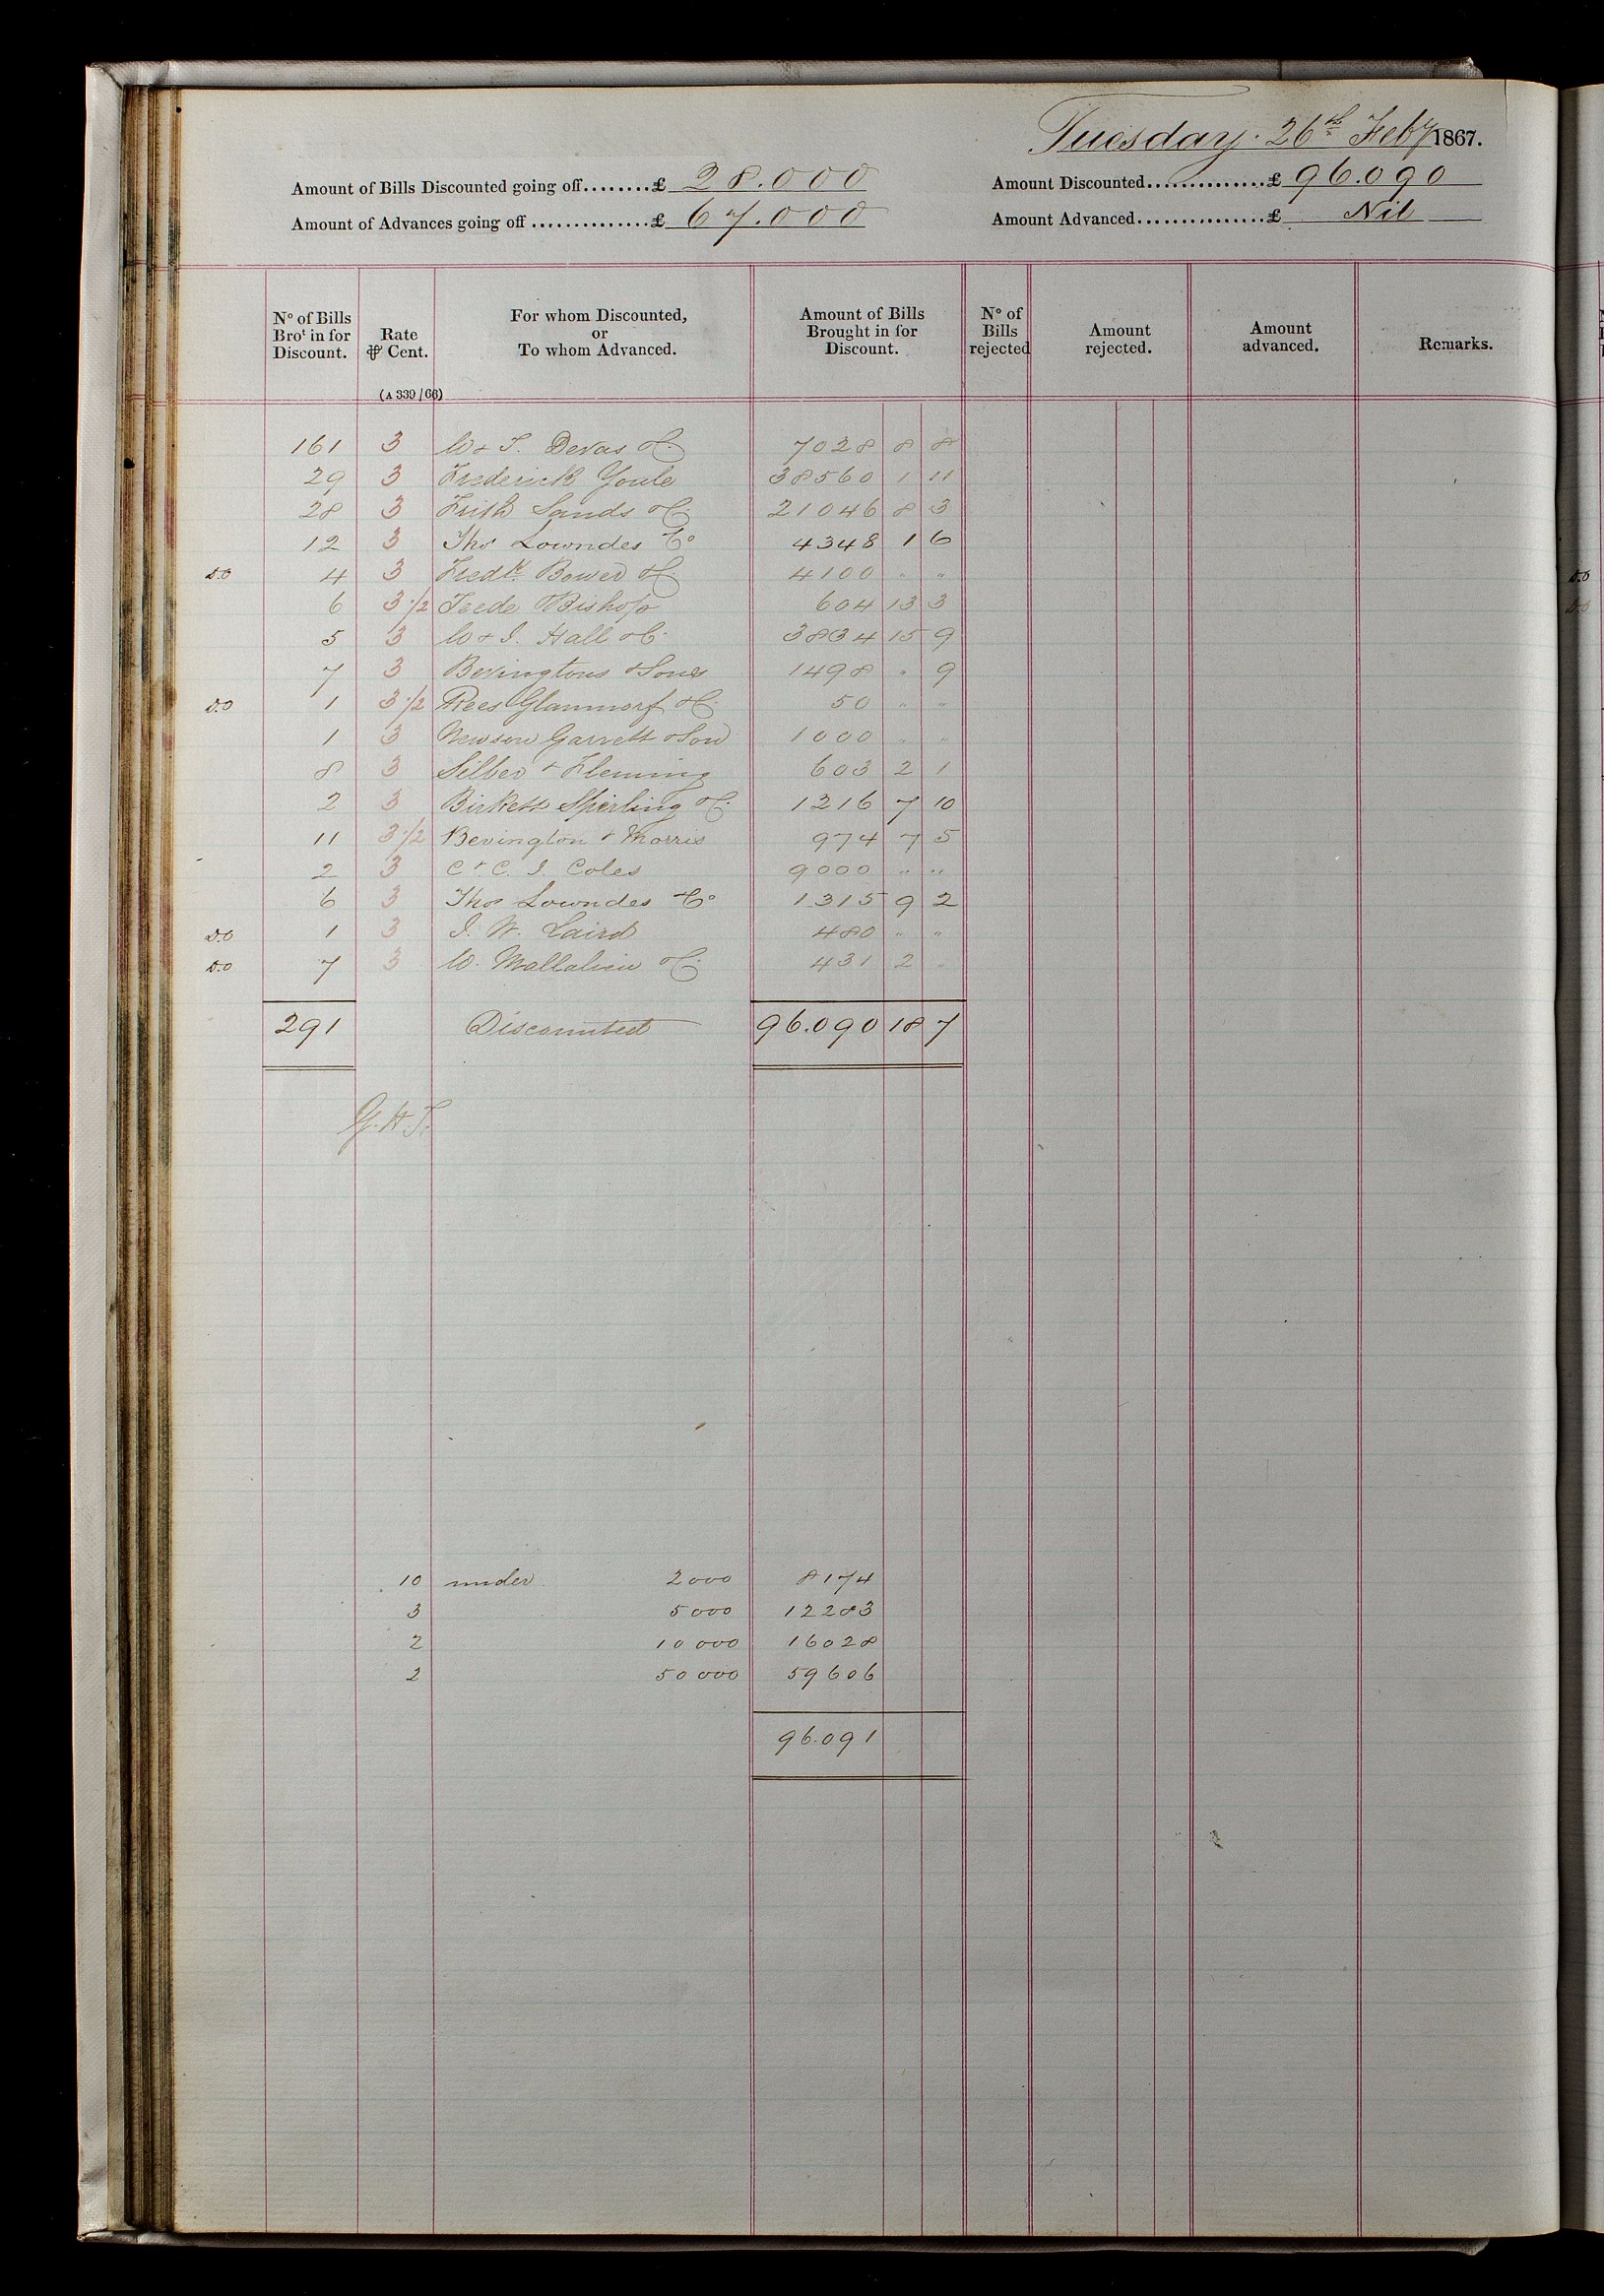 Tuesday. 26th Feby 1867.
Amount of Bills Discounted going off........£ 28.000 Amount Discounted..............£ 96.090
Amount of Advances going off ..............£ 67.000 Amount Advanced...............£ Nil
No of Bills Brot in for Discount. Rate ⅌ Cent. For whom Discounted, or To whom Advanced. Amount of Bills Brought in for Discount. No of Bills rejected Amount rejected. Amount advanced. Remarks.
(A 339/66)
161 3 W & T. Devas & Co 7028 8 8
29 3 Frederick Youle 38560 1 11
28 3 Frith Sands & Co 21046 8 3
12 3 Thos Lowndes & Co 4348 1 6
D.O 4 3 Fredk Bower & Co 4100 " "
6 3 1/2 Teede & Bishop 604 13 3
5 3 W & I. Hall & Co 3834 15 9
7 3 Bevingtons & Sons 1498 " 9
D.O 1 3 1/2 Rees Glanmorf & Co 50 " "
1 3 Newson Garrett & Son 1000 " "
8 3 Silber & Fleming 603 2 1
2 3 Birkett Sperling & Co 1216 7 10
11 3 1/2 Bevington & Morris 974 7 5
2 3 C & C. I. Coles 9000 " "
6 3 Thos Lowndes & Co 1315 9 2
D.O 1 3 I. W. Laird 480 " "
D.O 7 3 W. Mallalieu & Co 431 2 "
291 Discounted 96.090 18 7
G.H.T.
10 under 2000 8174
3 5000 12283
2 10 000 16028
2 50 000 59606
96.091